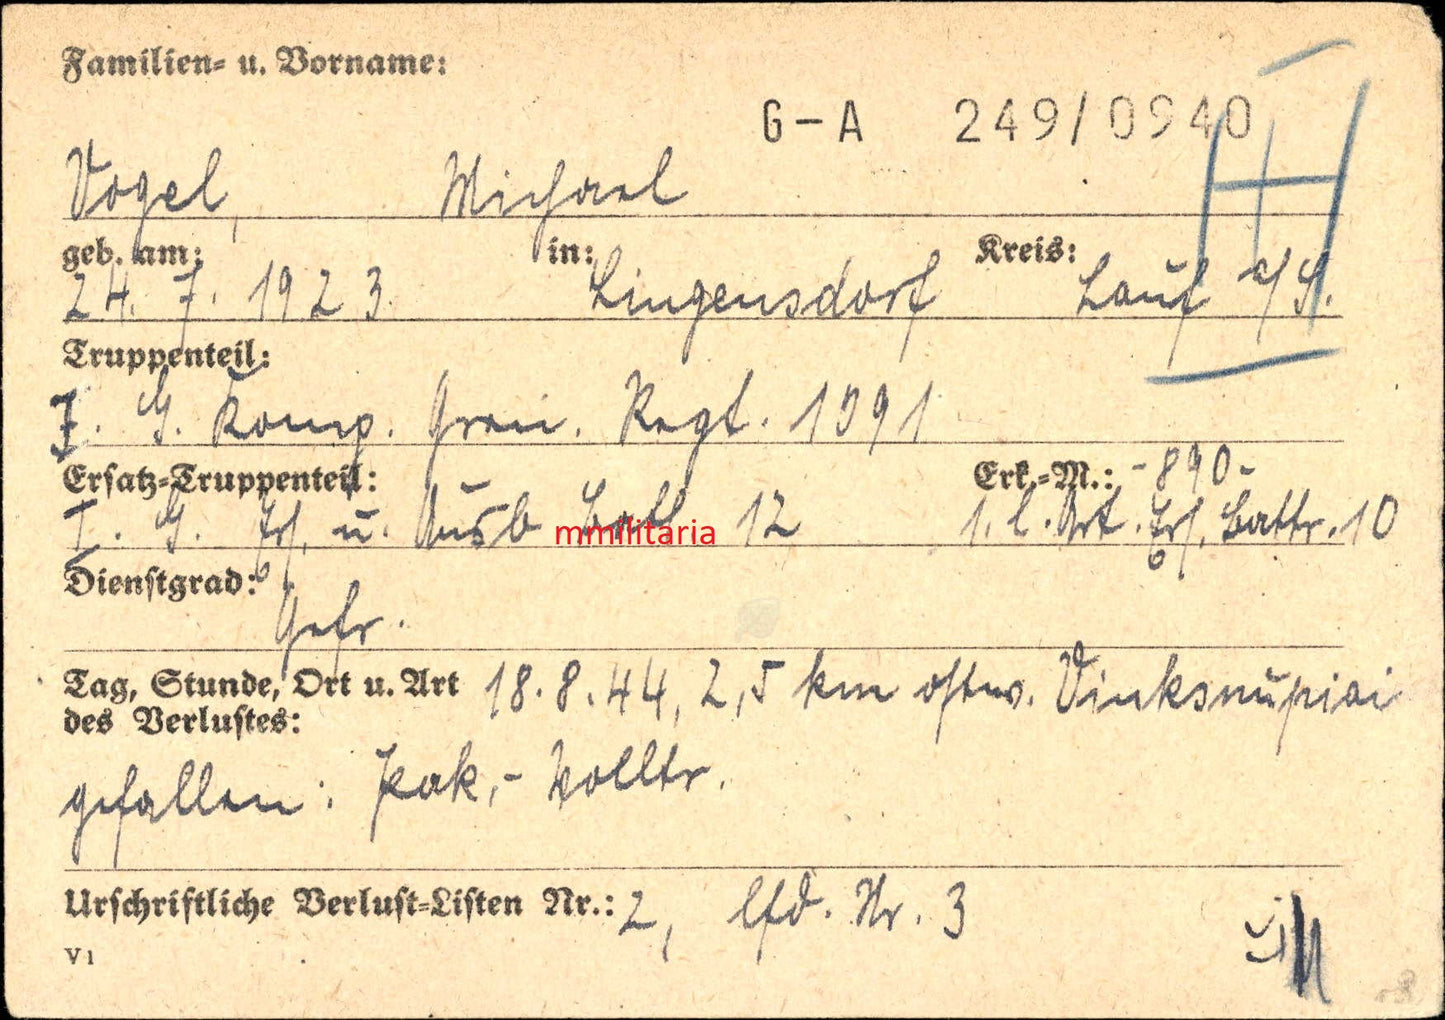 Familien- u. Vorname:
G-A 249/0940
Vogel, Michael
geb. am: in: Kreis:
24. 7. 1923 Lingensdorf Lauf a/S.
Truppenteil:
7. G. Komp. Gren. Regt. 1091
Ersatz-Truppenteil: Erk.-M.: -890-
I. G. Ers. u. Ausb Batl 12 1. l. Art. Ers. Battr. 10
mmilitaria
Dienstgrad:
Gefr.
Tag, Stunde, Ort u. Art 18.8.44, 2,5 km ostw. Vinksnupiai
des Verlustes:
gefallen: Pak,- Volltr.
Urschriftliche Verlust-Listen Nr.: 2, lfd. Nr. 3
V1